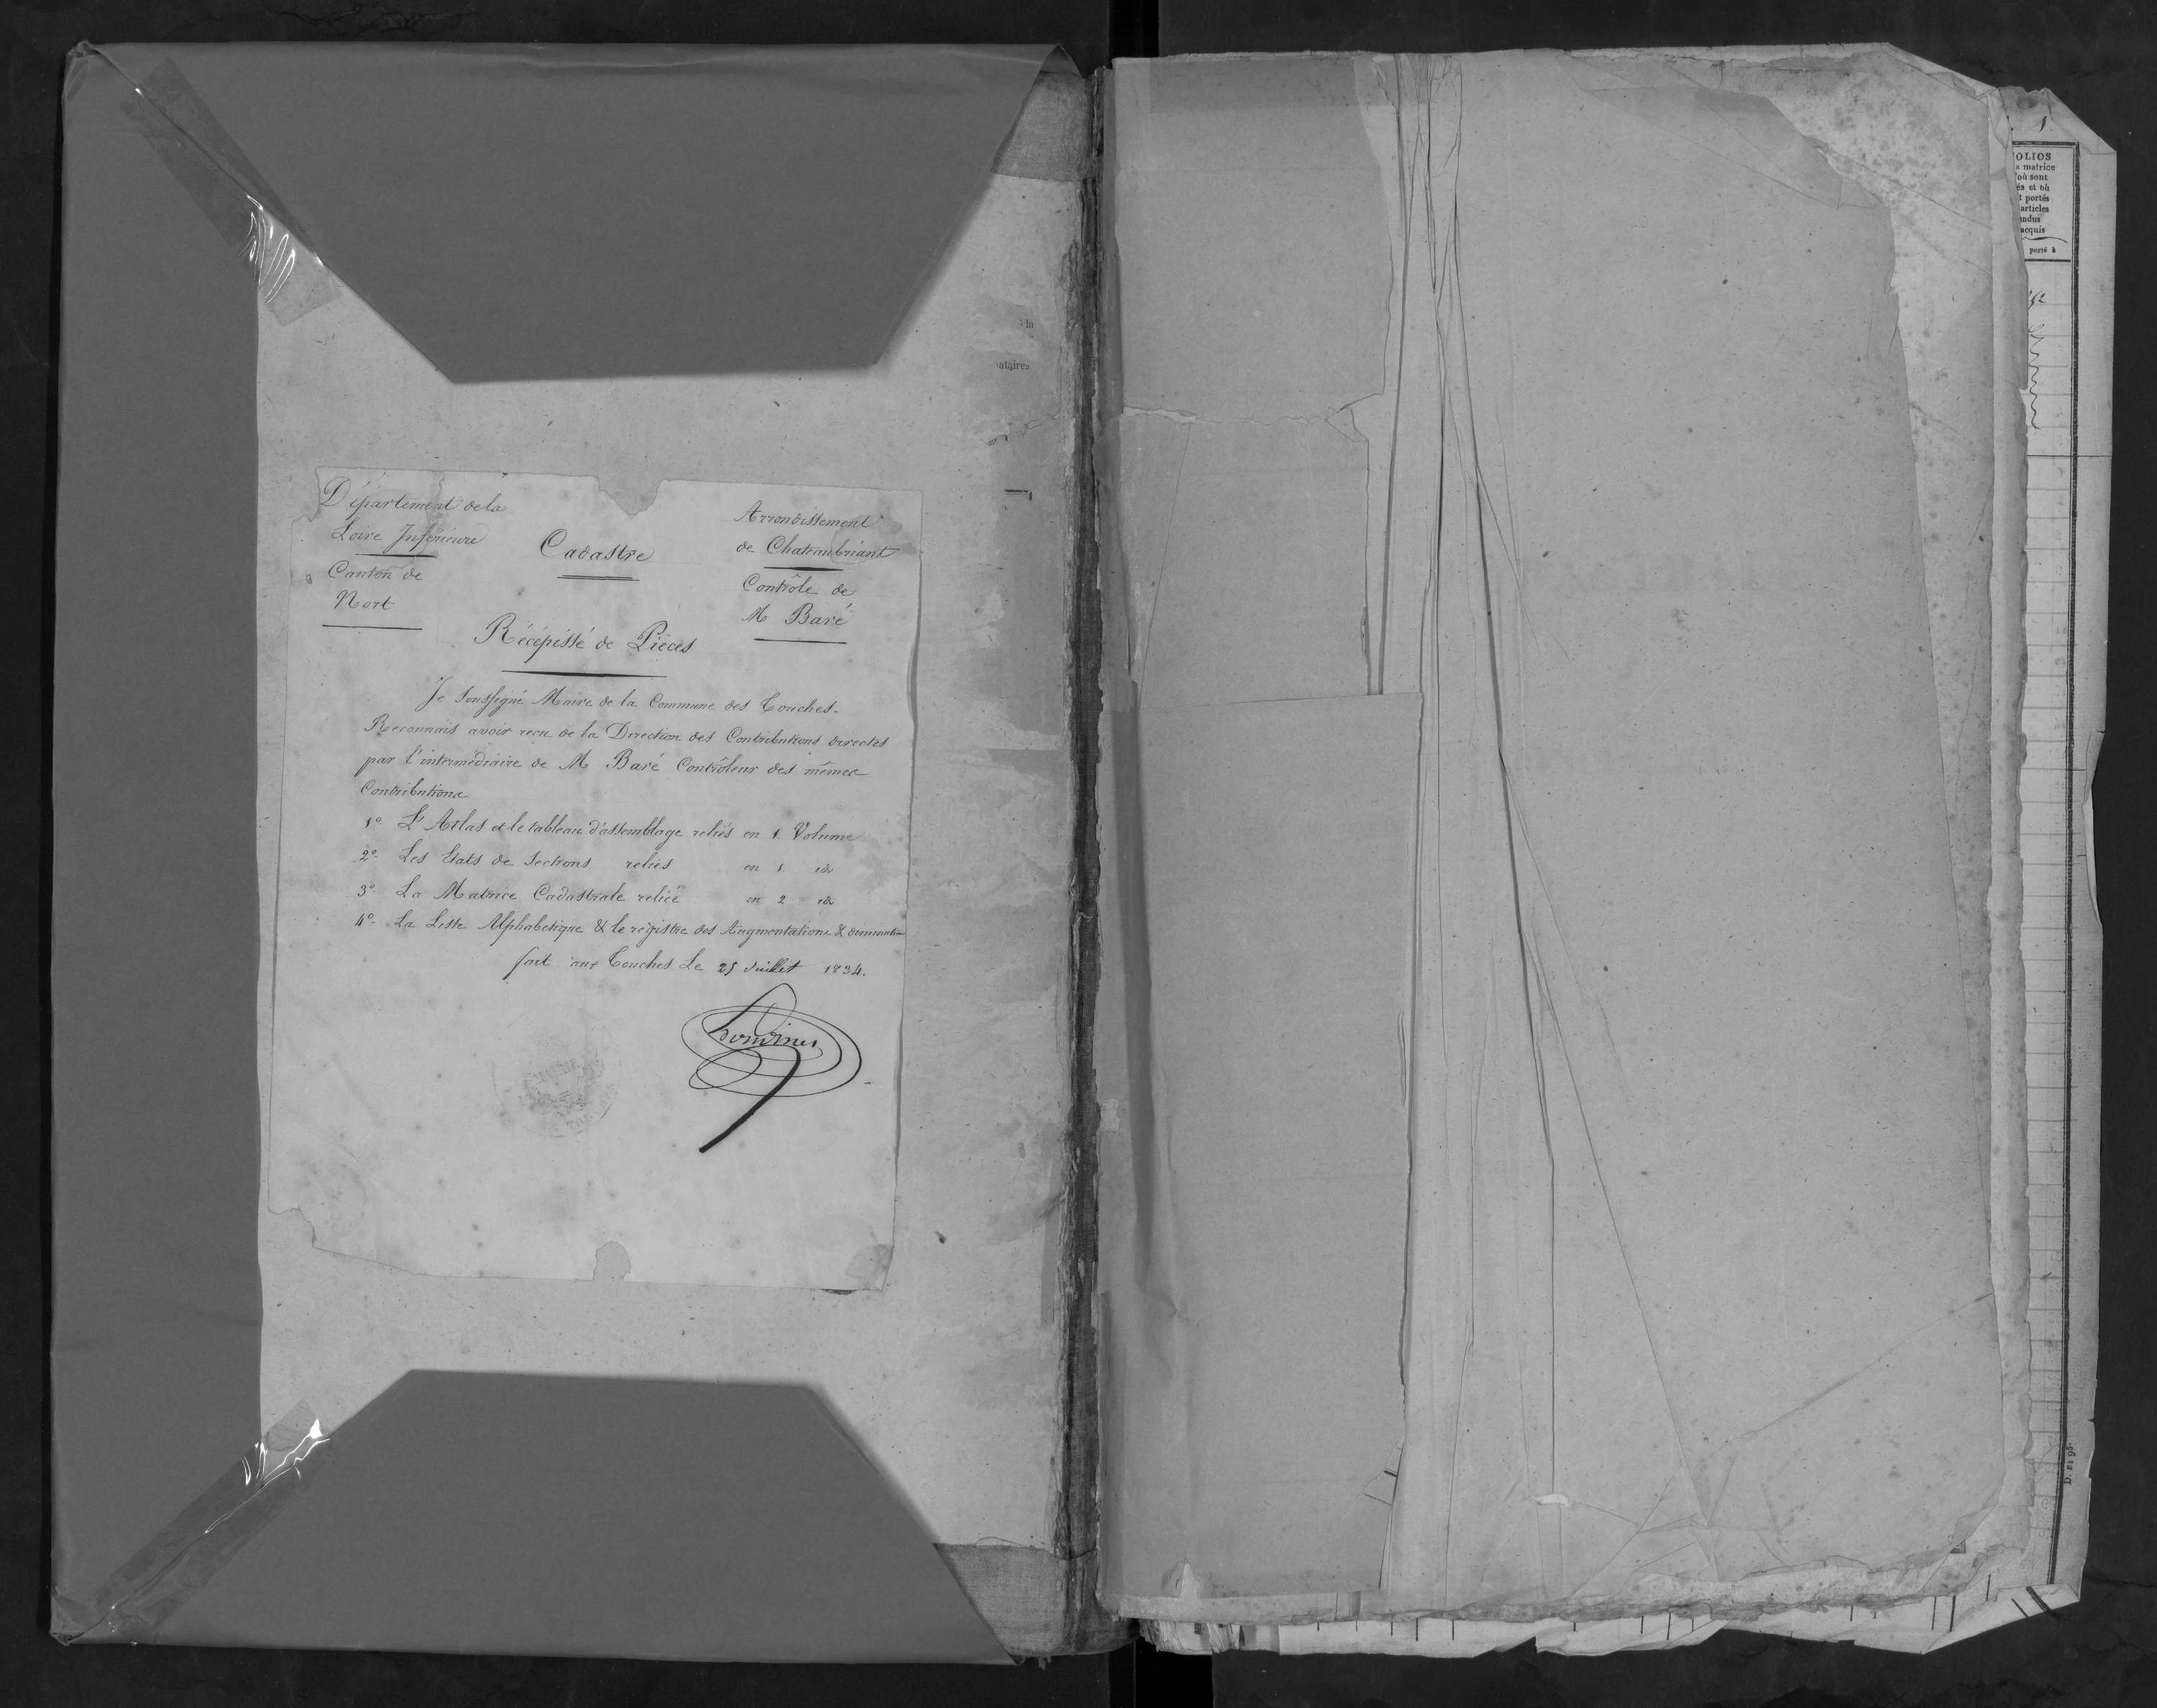 Département de la
Loire Inférieure
Canton de
Nort
Cadastre
Arrondissement
de Chateaubriant
Contrôle de
M Baré
Récépissé de Pièces
Je Soussigné Maire de la Commune des Touches
Reconnais avoir reçu de la Direction des Contributions directes
par l'intermédiaire de M Baré Contrôleur des mêmes
Contributions
1º L'Atlas et le tableau d'assemblage reliés en 1 Volume
2º Les Etats de Sections reliés en 1 id
3º La Matrice Cadastrale reliée en 2 id
4º La Liste Alphabetique & le régistre des Augmentations & diminution
fait aux Touches Le 25 Juillet 1834.
à la
ataires
1
OLIOS
a matrice
'où sont
és et où
t portés
articles
ndus
acquis
porté à